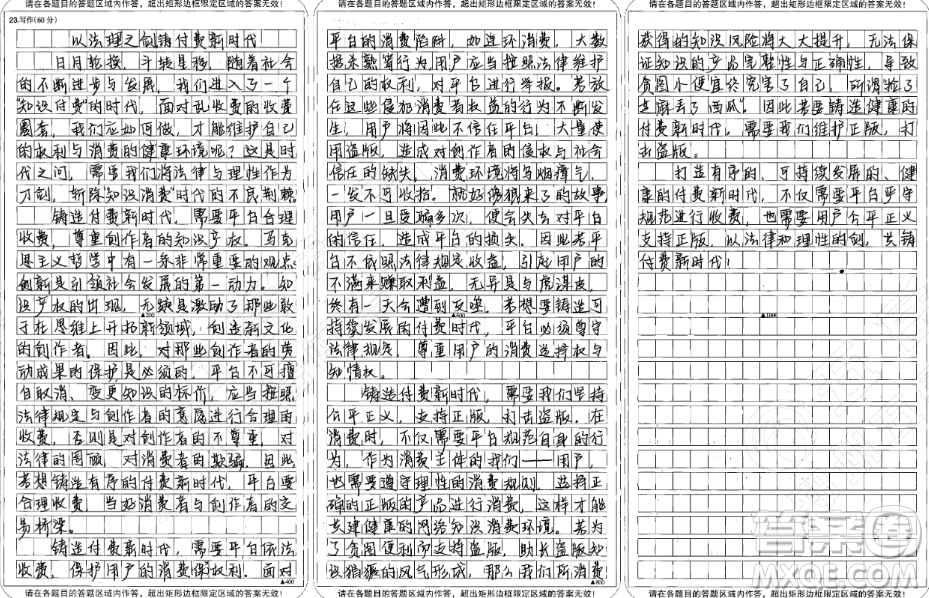 请在各题目的答题区域内作答，超出矩形边框限定区域的答案无效！
23.写作(60分)
以法理之剑铸付费新时代
日月轮换，斗转星移，随着社会
的不断进步与发展，我们进入了一个
"知识付费"的时代，面对乱收费的收费
圈套，我们应如何做，才能维护自己
的权利与消费的健康环境呢？这是时
代之问，需要我们将法律与理性作为
刀剑，斩除"知识消费"时代的不良荆棘
铸造付费新时代，需要平台合理
收费，尊重创作者的知识产权。马克
思主义哲学中有一条非常重要的观点:
创新是引领社会发展的第一动力。知
识产权的出现，无疑是激励了那些敢
于在思维上开拓新领域，创造新文化
的创作者。因此，对那些创作者的劳
动成果的保护是必须的，平台不可擅
自取消、变更知识的标价，应当按照
法律规定与创作者的意愿进行合理的
收费，否则是对创作者的不尊重，对
法律的罔顾，对消费者的欺骗。因此
若想铸造有序的付费新时代，平台要
合理收费，当好消费者与创作者的交
易桥梁。
铸造付费新时代，需要平台依法
收费，保护用户的消费权利。面对
▲400
请在各题目的答题区域内作答，超出矩形边框限定区域的答案无效！
请在各题目的答题区域内作答，超出矩形边框限定区域的答案无效！
平台的消费陷阱，如连环消费，大数
据杀熟等行为，用户应当按照法律维护
自己的权利，对平台进行举报。若放
任这些侵犯消费者权益的行为不断发
生，用户将因此不信任平台，大量使
用盗版，造成对创作者的侵权与社会
信任的缺失，消费环境将乌烟瘴气，
一发不可收拾。就好像狼来了的故事，
用户一旦受骗多次，便会失去对平台
的信任，造成平台的损失。因此若平
台不依照法律规定收益，引起用户的
不满来赚取利益，无异是与虎谋皮，
终有一天会遭到反噬。若想要铸造可
持续发展的付费时代，平台必须遵守
法律规定，尊重用户的消费选择权与
知情权。
铸造付费新时代，需要我们坚持
公平正义，支持正版，打击盗版。在
消费时，不仅需要平台规范自身的行
为，作为消费主体的我们——用户，
也需要遵守理性的消费规则，选择正
确的正版的产品进行消费，这样才能
共建健康的网络知识消费环境。若为
了贪图便利而支持盗版，助长盗版知
识猖獗的风气形成，那么我们所消费
▲800
请在各题目的答题区域内作答，超出矩形边框限定区域的答案无效！
请在各题目的答题区域内作答，超出矩形边框限定区域的答案无效！
获得的知识风险将大大提升，无法保
证知识的产品完整性与正确性，导致
贪图小便宜终究害了自己，所谓"捡了
芝麻丢了西瓜"，因此若要铸造健康的
付费新时代，需要我们维护正版，打
击盗版。
打造有序的、可持续发展的、健
康的付费新时代，不仅需要平台守
规范进行收费，也需要用户公平正义
支持正版，以法律和理性的剑，共铸
付费新时代！
▲1000
请在各题目的答题区域内作答，超出矩形边框限定区域的答案无效！
答案圈
MXQE.COM